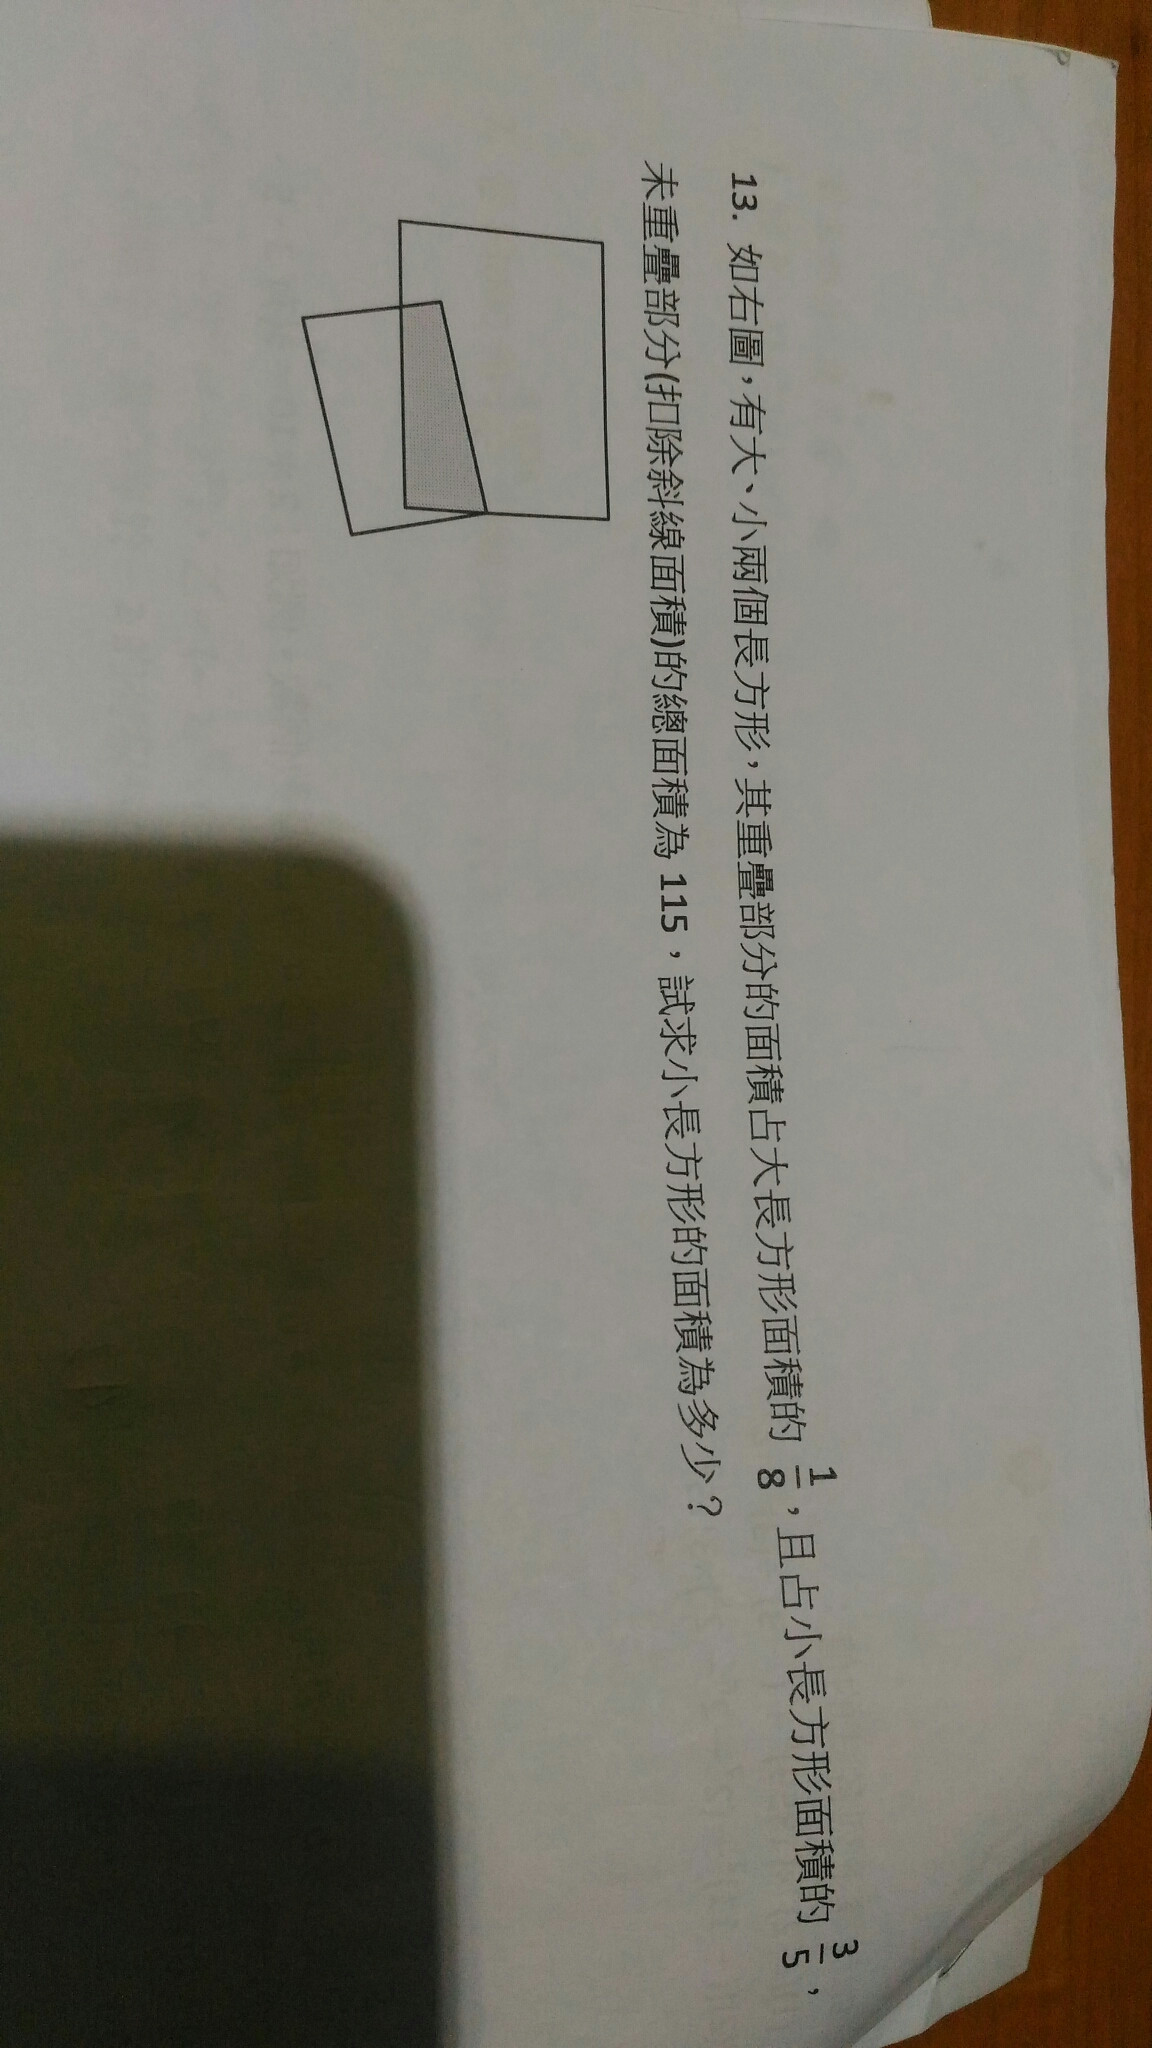 13. 如右圖，有大、小兩個長方形，其重疊部分的面積占大長方形面積的 1/8，且占小長方形面積的 3/5，
未重疊部分(扣除斜線面積)的總面積為 115，試求小長方形的面積為多少？